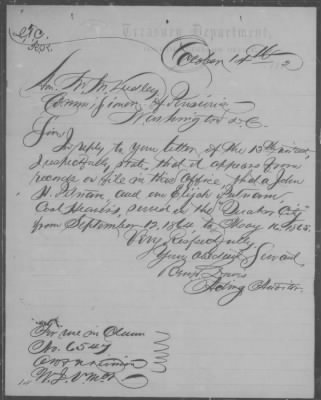 Treasury Department,
October 14th
Hon. W. W. Dudley
Commissioner of Pensions
Washington D.C.
Sir,
In reply to your letter of the 13th instant,
I respectfully state, that it appears from
records on file in this Office, that a John
H. and an Elijah Putnam,
Coal Heavers, served on the Quaker City
from September 13, 1864 to May 16 1865.
Very Respectfully,
Your obedient Servant
Acting Auditor.
For use in Claim
No. 6547